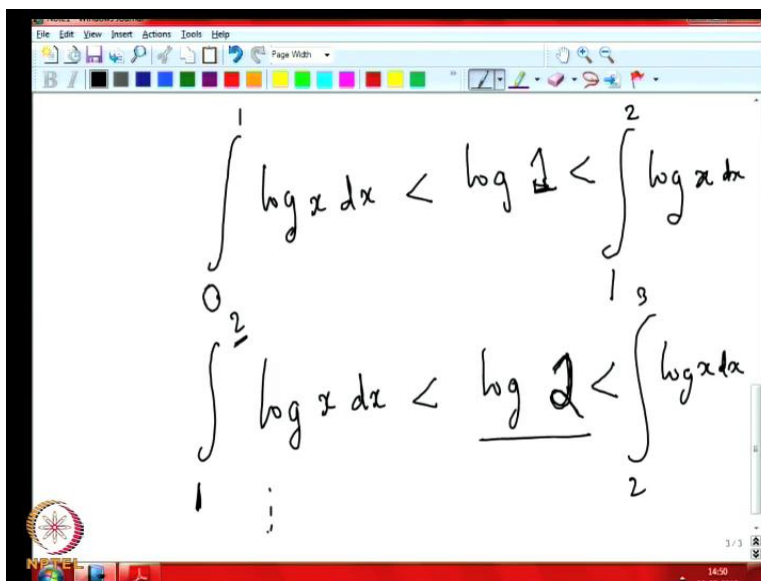 Note1 - Windows Journal
File Edit View Insert Actions Tools Help
Page Width
B I
∫₀¹ log x dx < log 1 < ∫₁² log x dx
∫₁² log x dx < log 2 < ∫₂³ log x dx
3 / 3
NPTEL
14:50